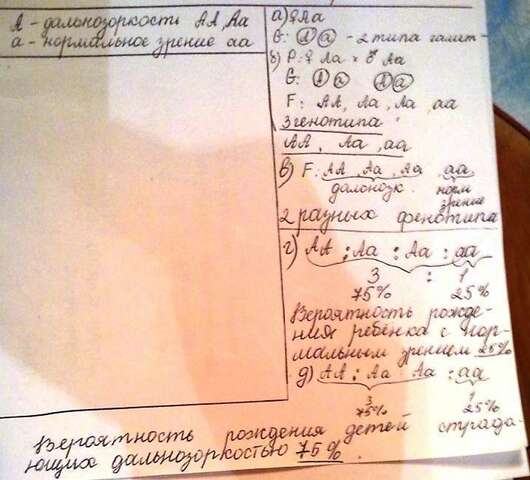 A - дальнозоркость АА, Аа
а - нормальное зрение аа
а) ♀Аа
G: А а - 2 типа гамет -
б) Р: ♀ Аа × ♂ Аа
G: А а А а
F: АА, Аа, Аа, аа
3 генотипа
АА, Аа, аа
в) F: АА, Аа, Аа, аа
далонозк. норм
зрение
2 разных фенотипа
г) АА : Аа : Аа : аа
3 : 1
75% 25%
Вероятность рожде-
ния ребёнка с нор-
мальным зрением 25%
д) АА : Аа : Аа : аа
3 1
75% 25%
Вероятность рождения детей страда-
ющих дальнозоркостью 75%.